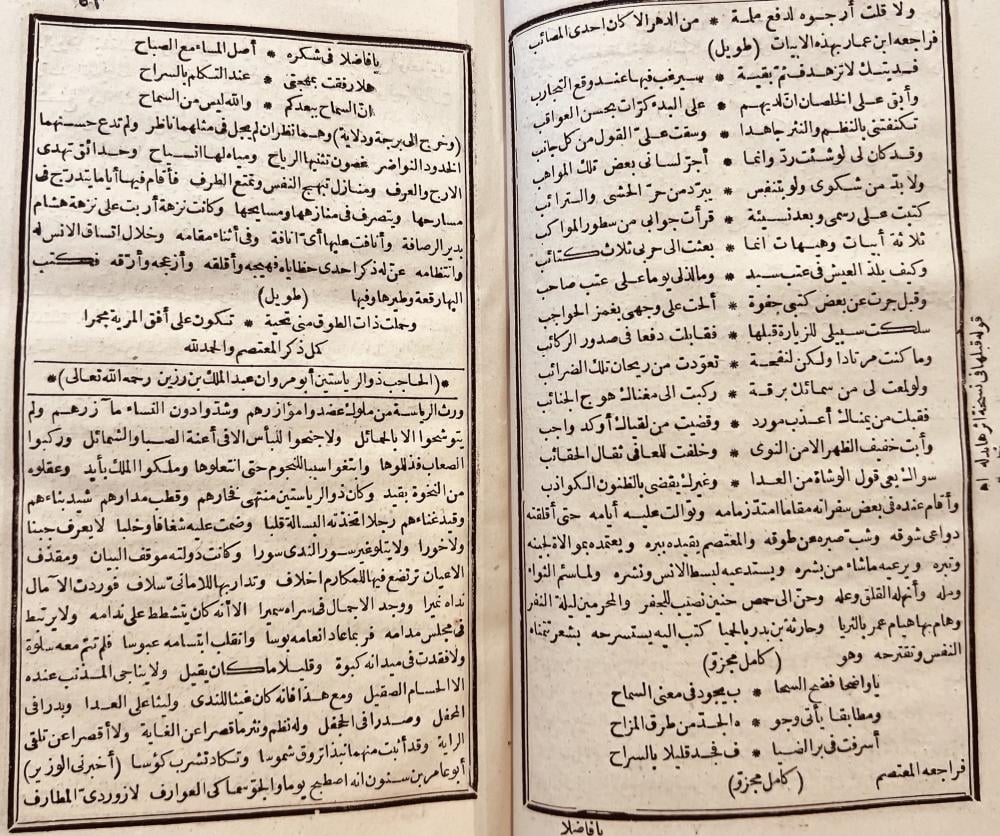 ولا قلت أرجوه لدفع ملمة * من الدهر الا كان احدى المصائب
فراجعه ابن عمار بهذه الابيات (طويل)
فديتك لا تزهد فثم بقية * سيرغب فيها عند وقع التجارب
وأبق على الخلصان ان لديهم * على البدء كرات بحسن العواقب
تكنفتنى بالنظم والنثر جاهدا * وسقت على القول من كل جانب
وقد كان لى لو شئت رد وانما * أجر لسانى بعض تلك المواهب
ولا بد من شكوى ولو بتنفس * يبرد من حر الحشى والترائب
كتبت على رسمى وبعد نسيئة * قرأت جوابى من سطور المواكب
ثلاثة أبيات وهيهات انما * بعثت الى حربى ثلاث كتائب
وكيف يلذ العيش فى عتب سيد * وما لذ لى يوما على عتب صاحب
وقبل جرت عن بعض كتبى جفوة * ألحت على وجهى بغمز الحواجب
سلكت سبيلى للزيارة قبلها * فقابلت دفعا فى صدور الركائب
وما كنت مرتادا ولكن لنفحة * تعودت من ريحان تلك الضرائب
ولو لمعت لى من سمائك برقة * ركبت الى مغناك هوج الجنائب
فقبلت من يمناك أعذب مورد * وقضيت من لقياك أوكد واجب
وأبت خفيف الظهر الا من النوى * وخلفت للعافى ثقال الحقائب
سواك يعى قول الوشاة من العدا * وغيرك يقضى بالظنون الكواذب
وأقام عنده فى بعض سفراته مقاما امتد زمامه وتوالت عليه أيامه حتى أقلقته
دواعى شوقه وشب صبره عن طوقه والمعتصم يقيده ببره ويعتمده بموالاة لجينه
وتبره ويرعيه ماشاء من بشره ويستدعيه لبسط الانس ونشره ولما سئم الثواء
ومله وأنهله القلق وعله وحن الى حمص حنين نصيب للجفر والمحرمين ليلة النفر
وهام بها هيام عمر بالثريا وحارثة بن بدر بالحميا كتب اليه يستسرحه بشعر تتمناه
النفس وتقترحه وهو (كامل مجزو)
ياواضحا فضح السحا * ب يجود فى معنى السماح
ومطابقا يأتى وجو * ه الجد من طرق المزاح
أسرفت فى بر الضيا * ف فجد قليلا بالسراح
فراجعه المعتصم (كامل مجزو)
يافاضلا
قوله قبلها فى نسخة اثرها بدله اه
يافاضلا فى شكره * أصل المساء مع الصباح
هلا رفقت بمهجتى * عند التكلم بالسراح
ان السماح ببعدكم * والله ليس من السماح
(وخرج الى برجة ودلاية) وهما نظران لم يجل فى مثلهما ناظر ولم تدع حسنهما
الخدود النواضر غصون تثنيها الرياح ومياه لها انسياح وحدائق تهدى
الارج والعرف ومنازل تبهج النفس وتمتع الطرف فأقام فيها أياما يتدرج فى
مسارحها ويتصرف فى منازهها ومسايحها وكانت نزهة أربت على نزهة هشام
بدير الرصافة وأنافت عليها أى انافة وفى أثناء مقامه وخلال اتساق الانس له
وانتظامه عن له ذكر احدى حظاياه فهيجه وأقلقه وأزعجه وأرقه فكتب
اليها رقعة وطيرها وفيها (طويل)
وحملت ذات الطوق منى تحية * تكون على أفق المرية مجمرا
كمل ذكر المعتصم والحمد لله
*(الحاجب ذو الرياستين أبو مروان عبد الملك بن رزين رحمه الله تعالى)*
ورث الرياسة من ملوك عضدوا مؤازرهم وشدوا دون النساء مآزرهم ولم
يتوشحوا الا بالحمائل ولا جنحوا للبأس الا فى أعنة الصبا والشمائل وركبوا
الصعاب فذللوها وابتغوا سببا للنجوم حتى انتعلوها وملكوا الملك بأيد وعقلوه
من النخوة بقيد وكان ذو الرياستين منتهى فخارهم وقطب مدارهم شيد بناءهم
وقيد غناءهم رجلا اتخذته البسالة قلبا وضمت عليه شغافا وخلبا لا يعرف جبنا
ولا خورا ولا يتلو غير سور الندى سورا وكانت دولته موقف البيان ومقذف
الاعيان ترتضع فيها للمكارم اخلاف وتدار بها للامانى سلاف فوردت الآمال
نداه نميرا ووجد الاجمال فى سراه سميرا الا أنه كان يتشطط على ندامه ولا يرتبط
فى مجلس مدامه فربما عاد انعامه بوسا وانقلب ابتسامه عبوسا فلم تتم معه سلوة
ولا فقدت فى ميدانه كبوة وقليلا ما كان يقيل ولا يناجى المذنب عنده
الا الحسام الصقيل ومع هذا فانه كان غيثا للندى وليثا على العدا وبدرا فى
المحفل وصدرا فى الجحفل وله نظم ونثر ما قصرا عن الغاية ولا أقصرا عن تلقى
الراية وقد أثبت منهما نبذا تروق شموسا وتكاد تشرب كؤسا (أخبرنى الوزير)
أبو عامر بن سنون انه اصطبح يوما والجو سماكى العوارف لازوردى المطارف